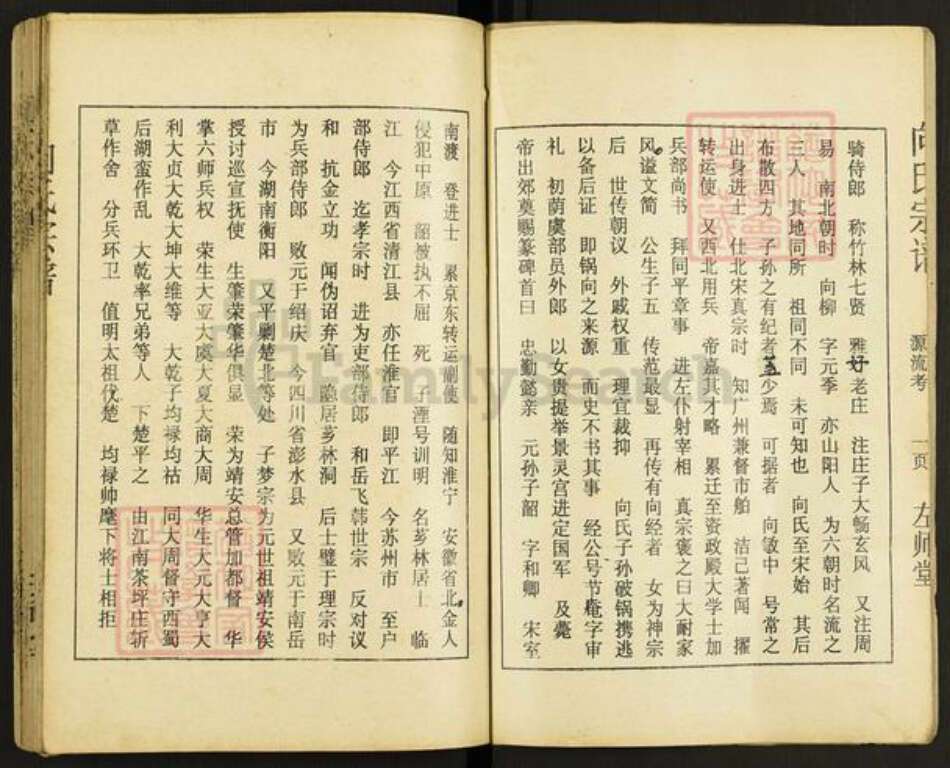 向氏宗谱
源流考
一页
左师堂
骑侍郎 称竹林七贤 雅好老庄 注庄子大畅玄风 又注周
易 南北朝时 向柳 字元季 亦山阳人 为六朝时名流之
三人 其地同所 祖同不同 未可知也 向氏至宋始 其后
布散四方 子孙之有纪者 少焉 可据者 向敏中 号常之
出身进士 仕北宋真宗时 知广州兼督市舶 洁己著闻 擢
转运使 又西北用兵 帝嘉其才略 累迁至资政殿大学士加
兵部尚书 拜同平章事 进左仆射宰相 真宗褒之曰大耐家
风。谥文简 公生子五 传范最显 再传有向经者 女为神宗
后 世传朝议 外戚权重 理宜裁抑 向氏子孙破锅携逃
以备后证 即锅向之来源 而史不书其事 经公号节庵字审
礼 初荫虞部员外郎 以女贵提举景灵宫进定国军 及薨
帝出郊奠赐篆碑首曰 忠勤懿亲 元孙子韶 字和卿 宋室
南渡 登进士 累京东转运副使 随知淮宁 安徽省北金人
侵犯中原 韶被执不屈 死 子湮号训明 名芗林居士 临
江 今江西省清江县 亦任淮官 即平江 今苏州市 至户
部侍郎 迄孝宗时 进为吏部侍郎 和岳飞韩世宗 反对议
和 抗金立功 闻伪诏弃官 隐居芗林洞 后士璧于理宗时
为兵部侍郎 败元于绍庆 今四川省澎水县 又败元于南岳
市 今湖南衡阳 又平剿楚北等处 子梦宗为元世祖靖安侯
授讨巡宣抚使 生肇荣肇华俱显 荣为靖安总管加都督 华
掌六师兵权 荣生大亚大虞大夏大商大周 华生大元大亨大
利大贞大乾大坤大维等 大乾子均禄均祜 同大周督守西蜀
后湖蛮作乱 大乾率兄弟等人 下楚平之 由江南茶坪庄斩
草作舍 分兵环卫 值明太祖伐楚 均禄帅麾下将士相拒
FamilySearch